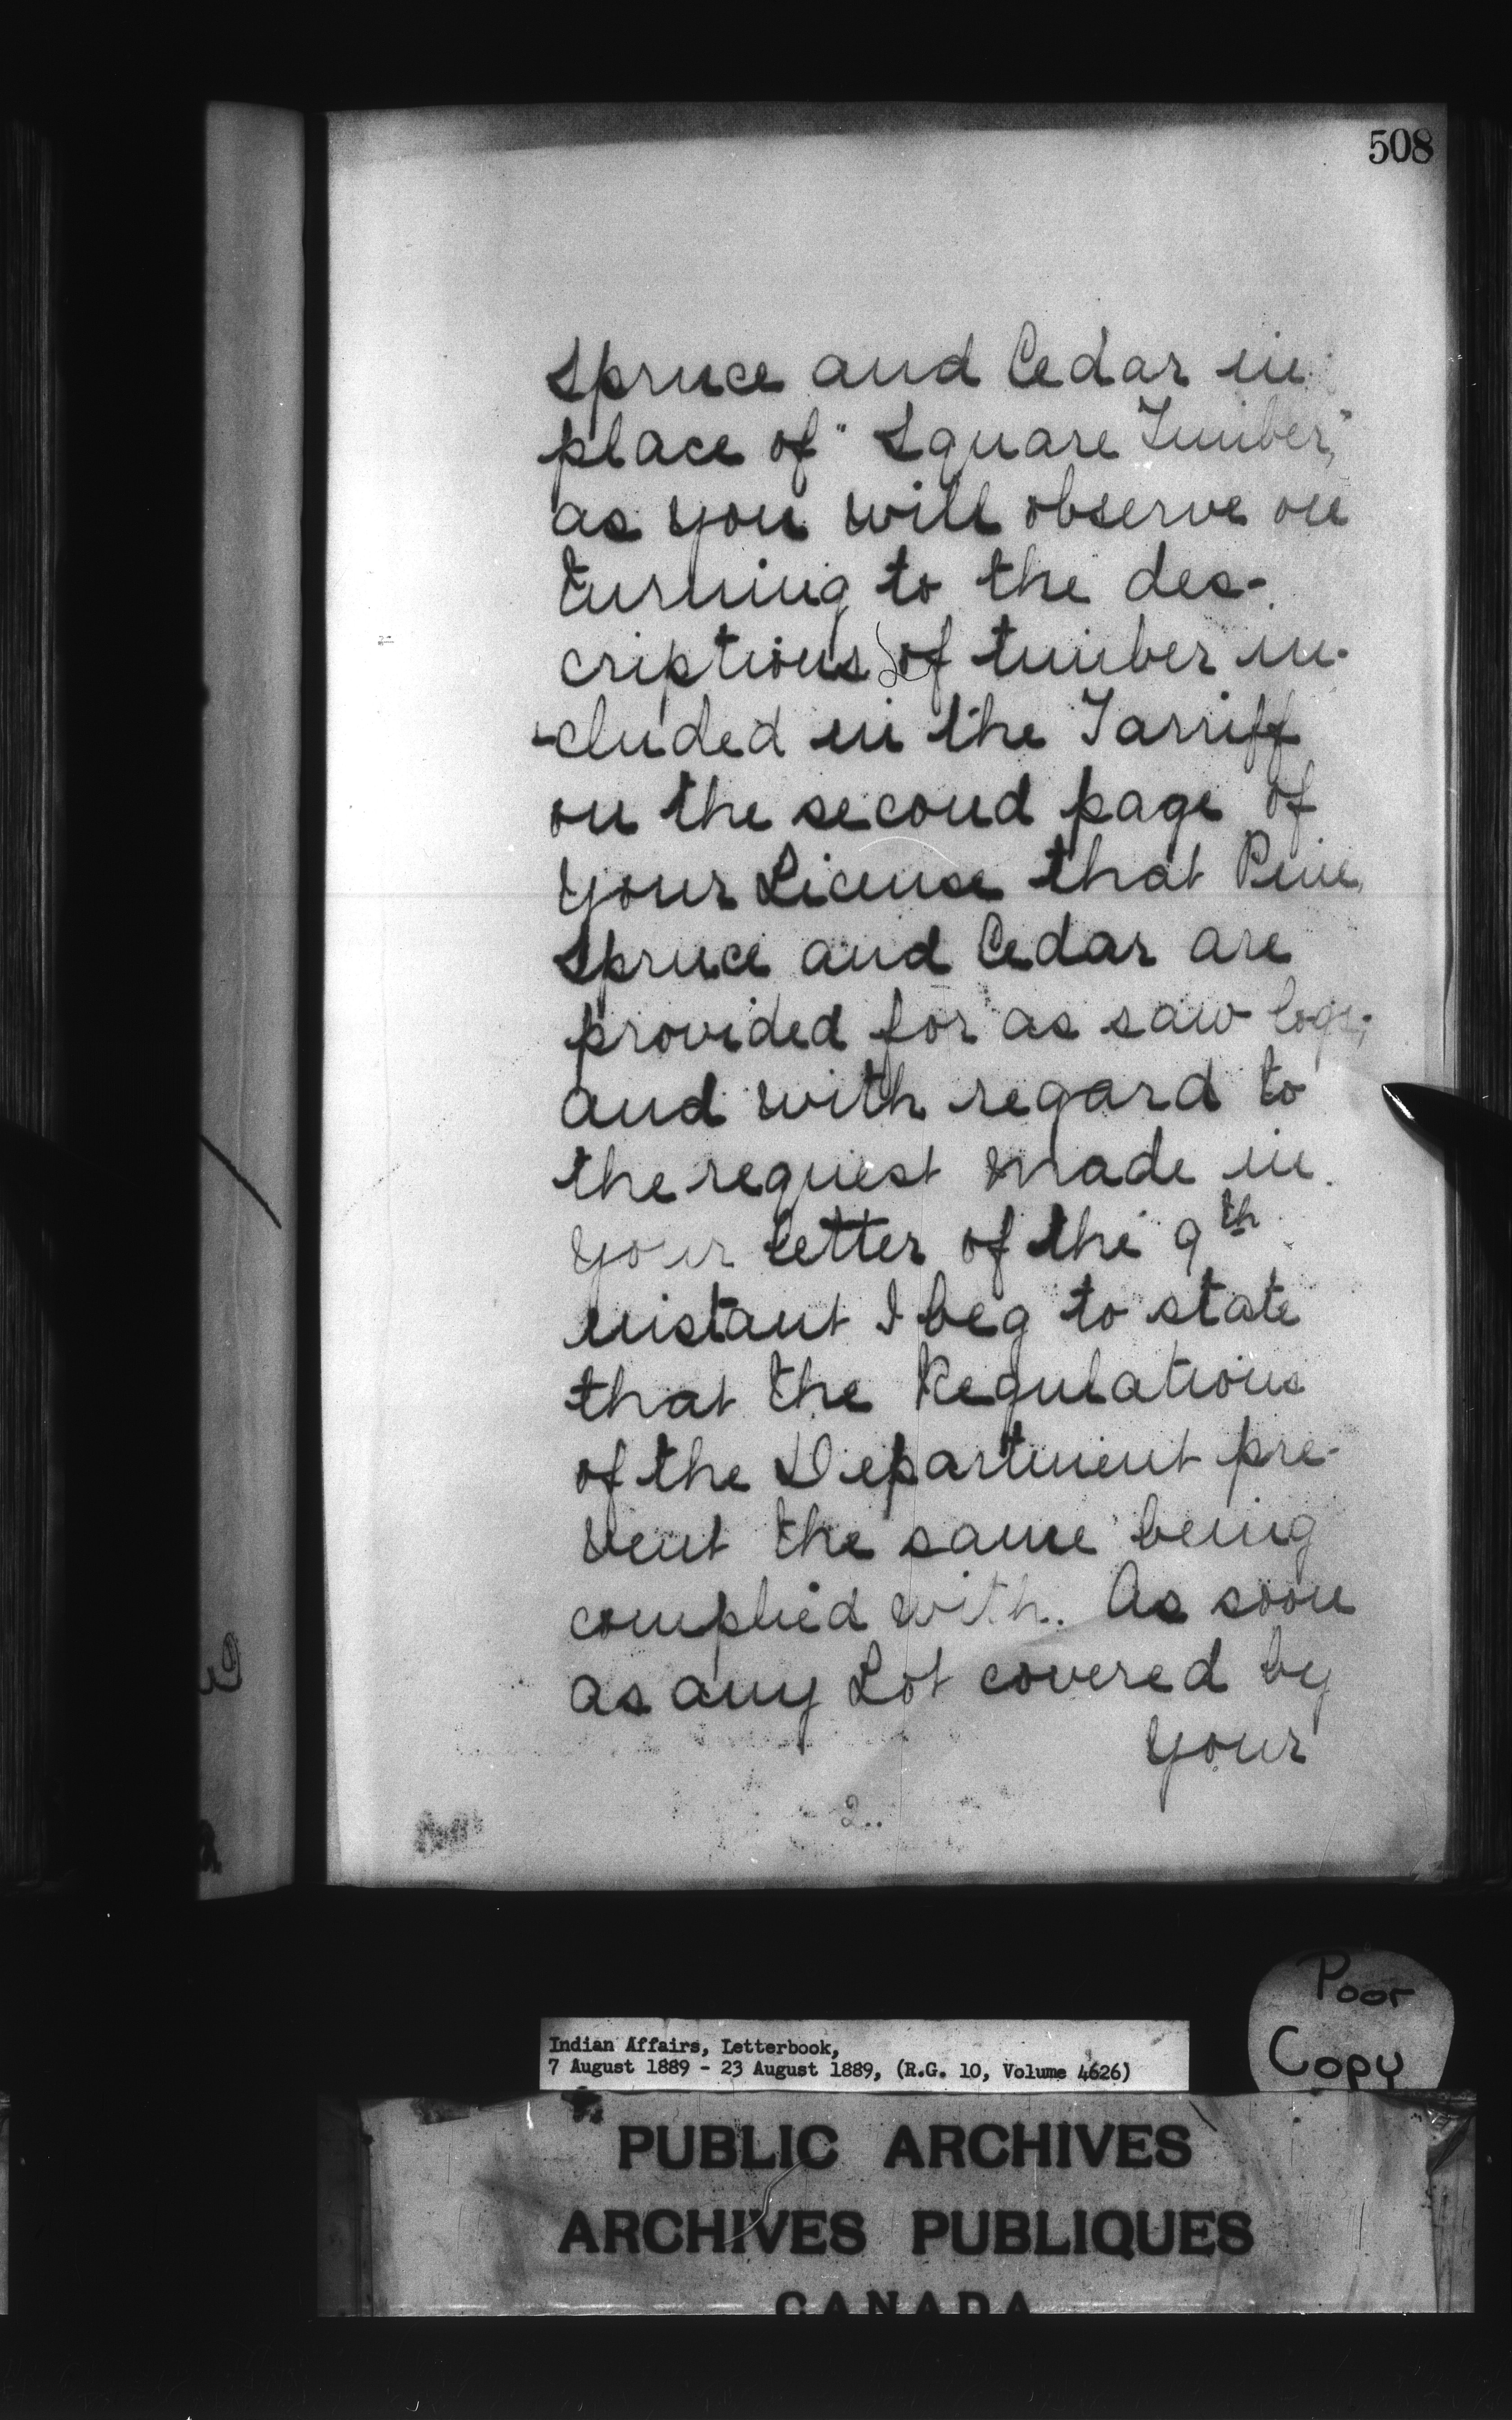 508
Spruce and Cedar in
place of "Square Timber,"
as you will observe on
turning to the des-
criptions of timber in-
-cluded in the Tarriff
on the second page of
your License that Pine,
Spruce and Cedar are
provided for as saw logs;
and with regard to
the request made in
your letter of the 9th
instant I beg to state
that the Regulations
of the Department pre-
vent the same being
complied with. As soon
as any Lot covered by
your
2..
Poor
Copy
Indian Affairs, Letterbook,
7 August 1889 - 23 August 1889, (R.G. 10, Volume 4626)
PUBLIC ARCHIVES
ARCHIVES PUBLIQUES
CANADA